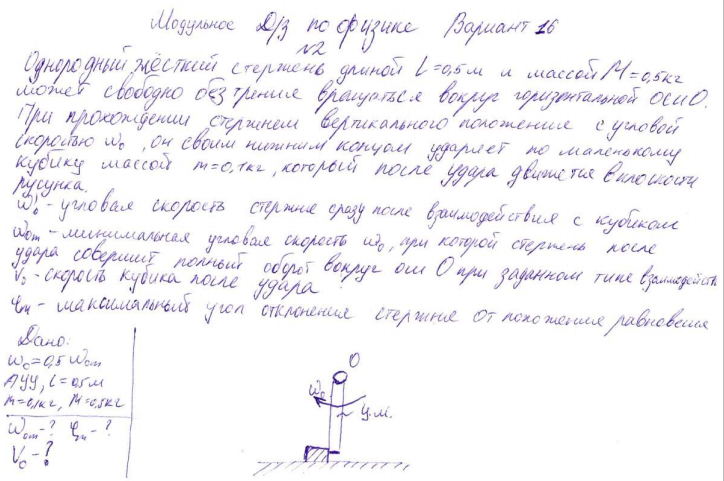 Модульное Д/з по физике Вариант 16
№2
Однородный жёсткий стержень длиной L=0,5м и массой M=0,5кг
может свободно без трения вращаться вокруг горизонтальной оси O.
При прохождении стержнем вертикального положения с угловой
скоростью ω₀, он своим нижним концом ударяет по маленькому
кубику массой m=0,1кг, который после удара движется в плоскости
рисунка.
ω₀' - угловая скорость стержня сразу после взаимодействия с кубиком
ω₀m - минимальная угловая скорость ω₀, при которой стержень после
удара совершит полный оборот вокруг оси O при заданном типе взаимодейств
V₀ - скорость кубика после удара
φm - максимальный угол отклонения стержня от положения равновесия
Дано:
ω₀=0,5 ω₀m
АУУ, L=0,5м
m=0,1кг, M=0,5кг
ω₀m-? φm-?
V₀-?
O
ω₀
ц.м.